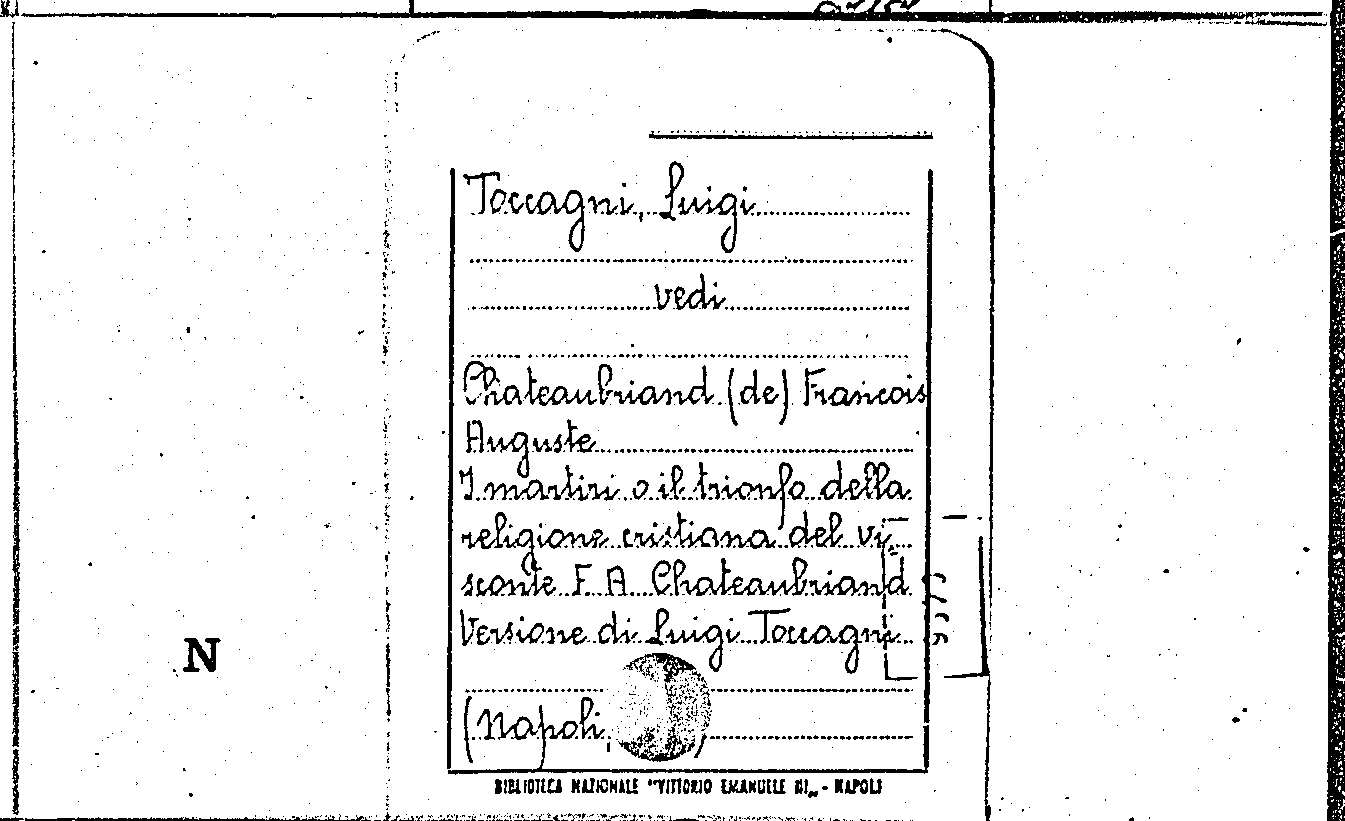 Toccagni, Luigi
vedi
Chateaubriand (de) Francois
Auguste
I martiri o il trionfo della
religione cristiana del vi-
sconte F. A. Chateaubriand
Versione di Luigi Toccagni
N
(Napoli, )
BIBLIOTECA NAZIONALE "VITTORIO EMANUELE III„ - NAPOLI